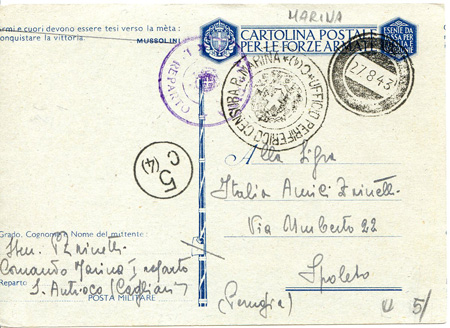 MARINA
rmi e cuori devono essere tesi verso la mèta:
onquistare la vittoria.
MUSSOLINI
CARTOLINA POSTALE
PER LE FORZE ARMATE
ESENTE DA
TASSA PER
L'ITALIA E
1° REPARTO
UFFICIO PERIFERICO CENSURA R. MARINA (4)
27.8.43
5
C
(4)
Alla Sig.ra
Italia Amici
Via Umberto 22
Spoleto
(Perugia)
Grado, Cognome e Nome del mittente:
Comando Marina I reparto
Reparto S. Antioco (Cagliari)
POSTA MILITARE
5/